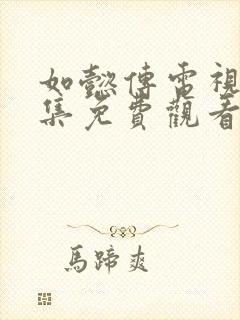 如懿傳電視
集免費觀看
馬蹄爽